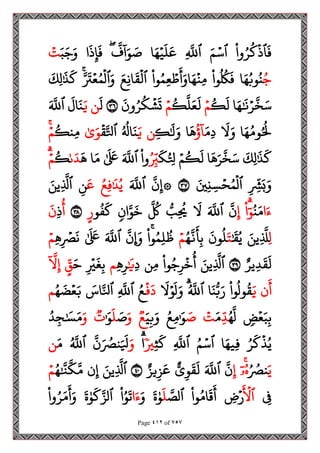 فَٱذْكُرُوا۟ ٱسْمَ ٱللَّهِ عَلَيْهَا صَوَآفَّ ۖ فَإِذَا وَجَبَتْ
جُنُوبُهَا فَكُلُوا۟ مِنْهَا وَأَطْعِمُوا۟ ٱلْقَانِعَ وَٱلْمُعْتَرَّ ۚ كَذَٰلِكَ
سَخَّرْنَٰهَا لَكُمْ لَعَلَّكُمْ تَشْكُرُونَ ٣٦ لَن يَنَالَ ٱللَّهَ
لُحُومُهَا وَلَا دِمَآؤُهَا وَلَٰكِن يَنَالُهُ ٱلتَّقْوَىٰ مِنكُمْ ۚ
كَذَٰلِكَ سَخَّرَهَا لَكُمْ لِتُكَبِّرُوا۟ ٱللَّهَ عَلَىٰ مَا هَدَىٰكُمْ ۗ
وَبَشِّرِ ٱلْمُحْسِنِينَ ٣٧ ۞ إِنَّ ٱللَّهَ يُدَٰفِعُ عَنِ ٱلَّذِينَ
ءَامَنُوٓا۟ ۗ إِنَّ ٱللَّهَ لَا يُحِبُّ كُلَّ خَوَّانٍ كَفُورٍ ٣٨ أُذِنَ
لِلَّذِينَ يُقَٰتَلُونَ بِأَنَّهُمْ ظُلِمُوا۟ ۚ وَإِنَّ ٱللَّهَ عَلَىٰ نَصْرِهِمْ
لَقَدِيرٌ ٣٩ ٱلَّذِينَ أُخْرِجُوا۟ مِن دِيَٰرِهِم بِغَيْرِ حَقٍّ إِلَّآ
أَن يَقُولُوا۟ رَبُّنَا ٱللَّهُ ۗ وَلَوْلَا دَفْعُ ٱللَّهِ ٱلنَّاسَ بَعْضَهُم
بِبَعْضٍ لَّهُدِّمَتْ صَوَٰمِعُ وَبِيَعٌ وَصَلَوَٰتٌ وَمَسَٰجِدُ
يُذْكَرُ فِيهَا ٱسْمُ ٱللَّهِ كَثِيرًا ۗ وَلَيَنصُرَنَّ ٱللَّهُ مَن
يَنصُرُهُۥٓ ۗ إِنَّ ٱللَّهَ لَقَوِىٌّ عَزِيزٌ ٤٠ ٱلَّذِينَ إِن مَّكَّنَّٰهُمْ
فِى ٱلْأَرْضِ أَقَامُوا۟ ٱلصَّلَوٰةَ وَءَاتَوُا۟ ٱلزَّكَوٰةَ وَأَمَرُوا۟
Page ٤١٢ of ٧٥٧